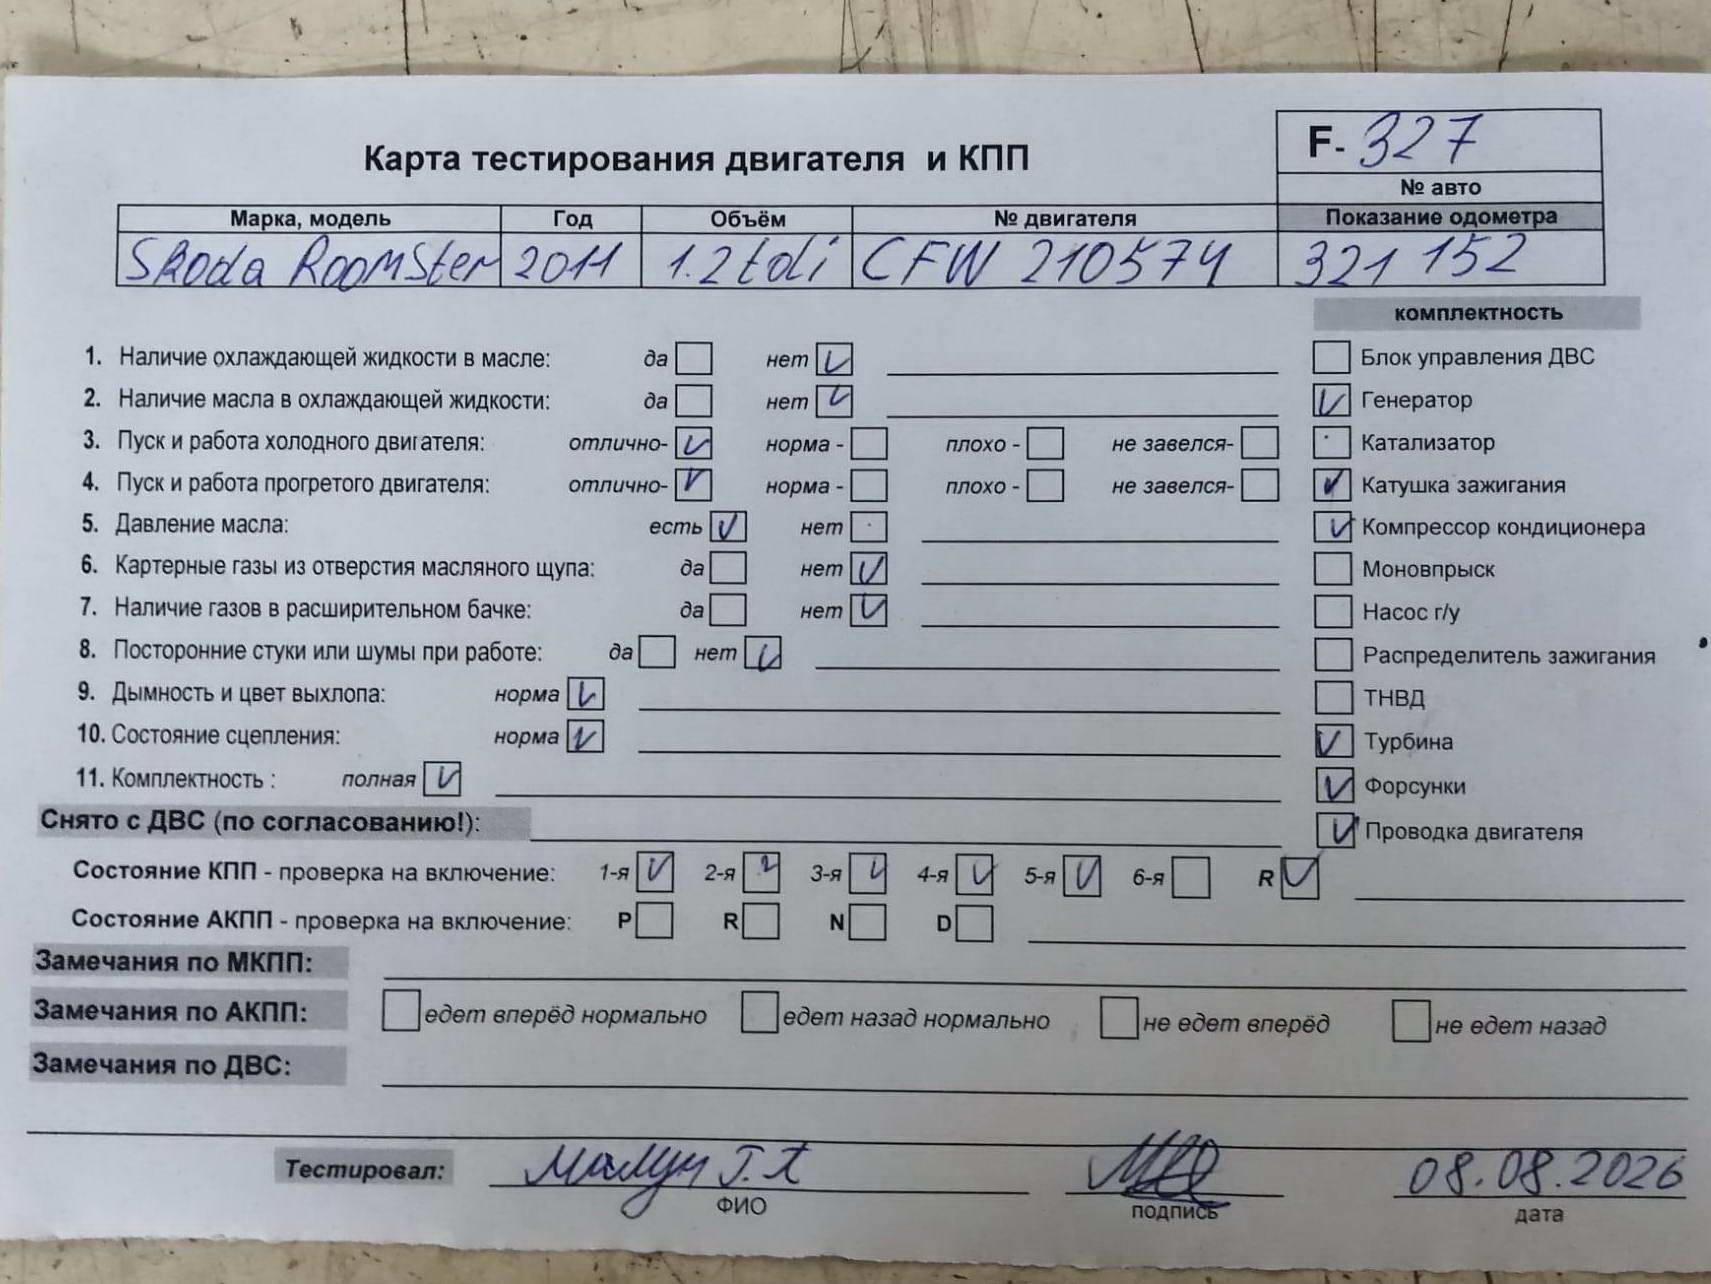 F- 327
Карта тестирования двигателя и КПП
№ авто
Марка, модель Год Объём № двигателя Показание одометра
Skoda Roomster 2011 1.2tdi CFW 210574 321 152
комплектность
1. Наличие охлаждающей жидкости в масле: да нет
Блок управления ДВС
2. Наличие масла в охлаждающей жидкости: да нет
Генератор
3. Пуск и работа холодного двигателя: отлично- норма - плохо - не завелся-
Катализатор
4. Пуск и работа прогретого двигателя: отлично- норма - плохо - не завелся-
Катушка зажигания
5. Давление масла: есть нет
Компрессор кондиционера
6. Картерные газы из отверстия масляного щупа: да нет
Моновпрыск
7. Наличие газов в расширительном бачке: да нет
Насос г/у
8. Посторонние стуки или шумы при работе: да нет
Распределитель зажигания
9. Дымность и цвет выхлопа: норма
ТНВД
10. Состояние сцепления: норма
Турбина
11. Комплектность : полная
Форсунки
Снято с ДВС (по согласованию!):
Проводка двигателя
Состояние КПП - проверка на включение: 1-я 2-я 3-я 4-я 5-я 6-я R
Состояние АКПП - проверка на включение: P R N D
Замечания по МКПП:
Замечания по АКПП: едет вперёд нормально едет назад нормально не едет вперёд не едет назад
Замечания по ДВС:
Тестировал: 08.08.2026
ФИО подпись дата